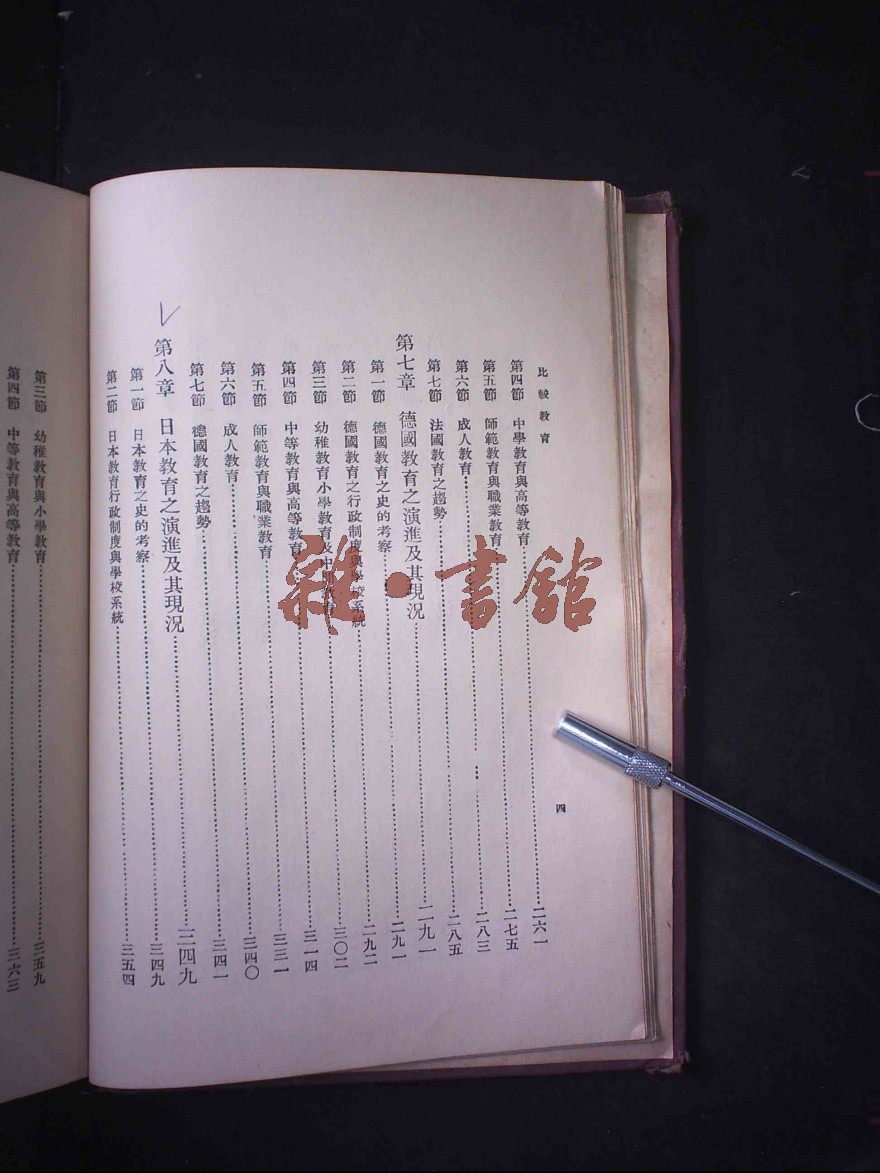 比較教育
四
第四節 中學教育與高等教育……二六一
第五節 師範教育與職業教育……二七五
第六節 成人教育……二八三
第七節 法國教育之趨勢……二八五
第七章 德國教育之演進及其現況……二九一
第一節 德國教育之史的考察……二九一
第二節 德國教育之行政制度與學校系統……二九二
第三節 幼稚教育小學教育及中間教育……三〇二
第四節 中等教育與高等教育……三一四
第五節 師範教育與職業教育……三三一
第六節 成人教育……三四〇
第七節 德國教育之趨勢……三四一
第八章 日本教育之演進及其現況……三四九
第一節 日本教育之史的考察……三四九
第二節 日本教育行政制度與學校系統……三五四
第三節 幼稚教育與小學教育……三五九
第四節 中等教育與高等教育……三六三
雜·書館